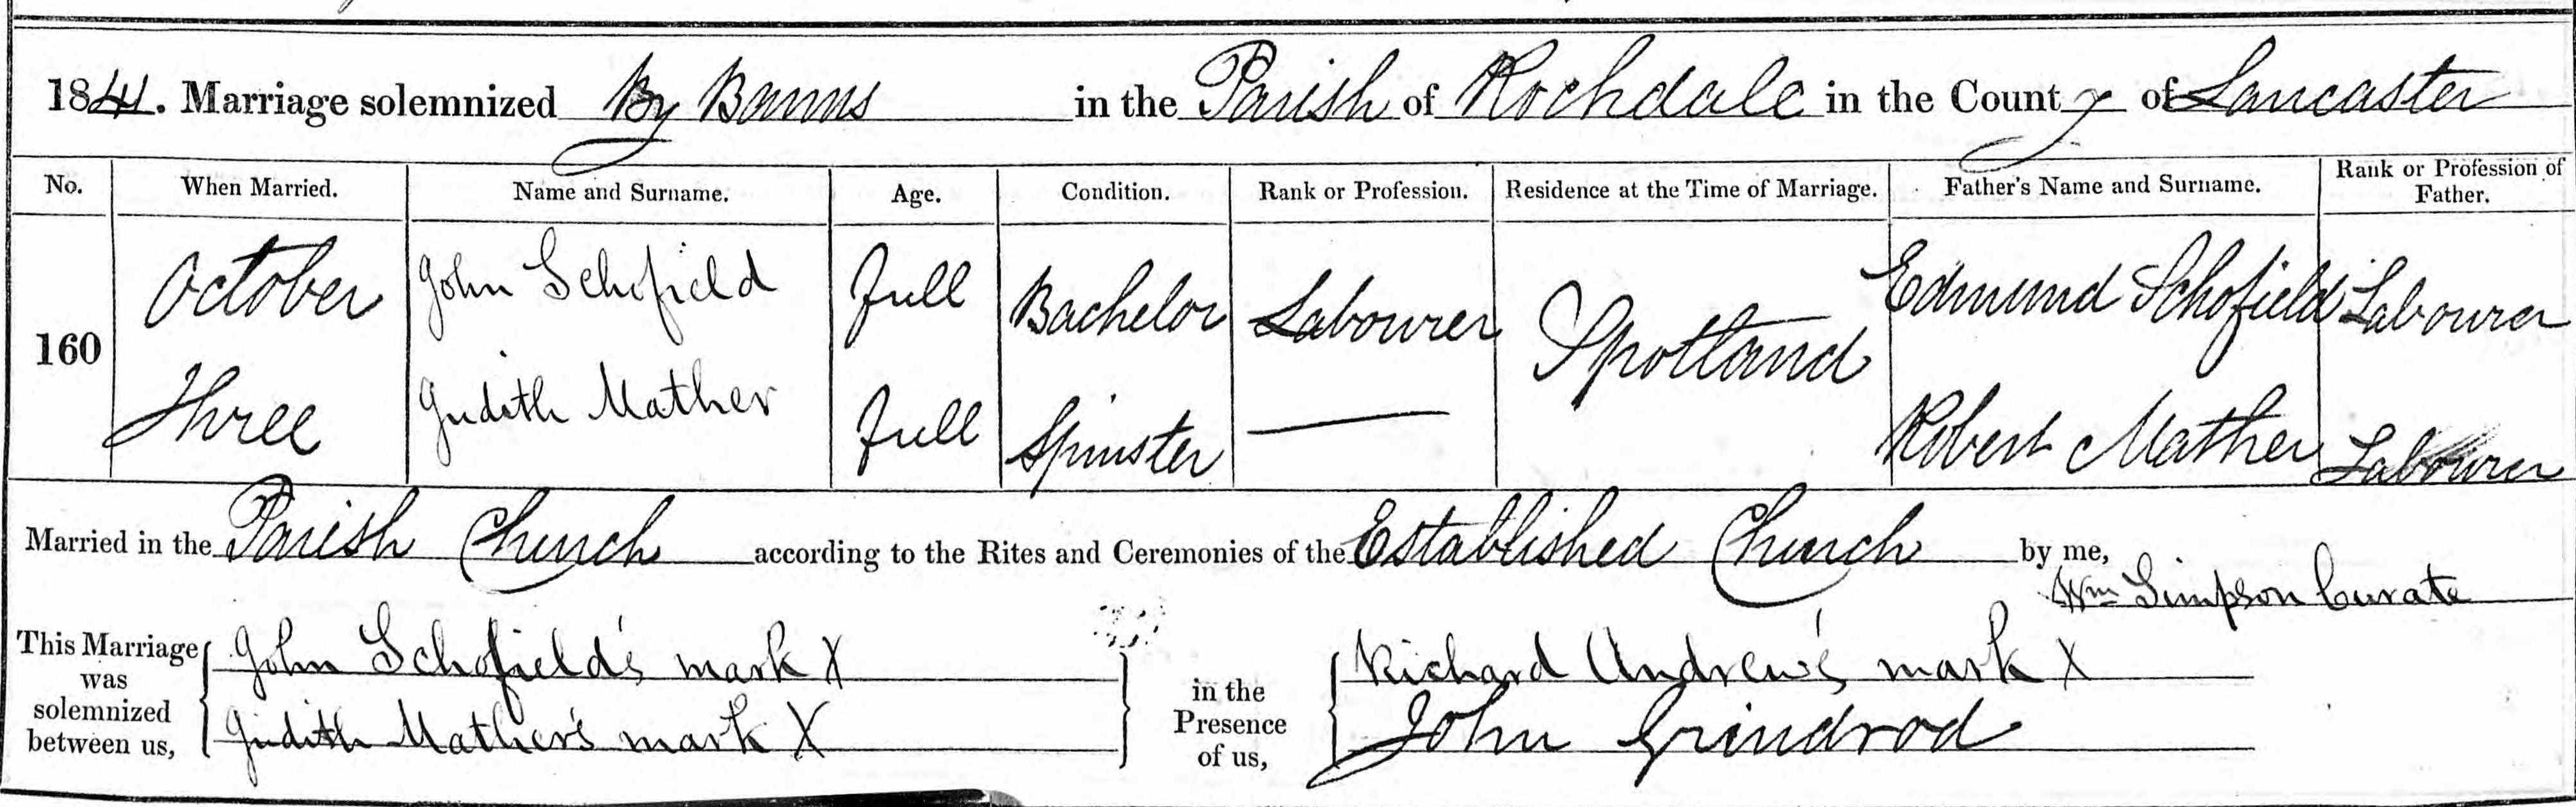 1841. Marriage solemnized By Banns in the Parish of Rochdale in the County of Lancaster
No. When Married. Name and Surname. Age. Condition. Rank or Profession. Residence at the Time of Marriage. Father's Name and Surname. Rank or Profession of Father.
160 October Three
John Schofield full Bachelor Labourer Spotland Edmund Schofield Labourer
Judith Mather full Spinster — Robert Mather Labourer
Married in the Parish Church according to the Rites and Ceremonies of the Established Church by me,
Wm Simpson Curate
This Marriage was solemnized between us,
John Schofield's mark X
Judith Mather's mark X
in the Presence of us,
Richard Andrew's mark X
John Grindrod